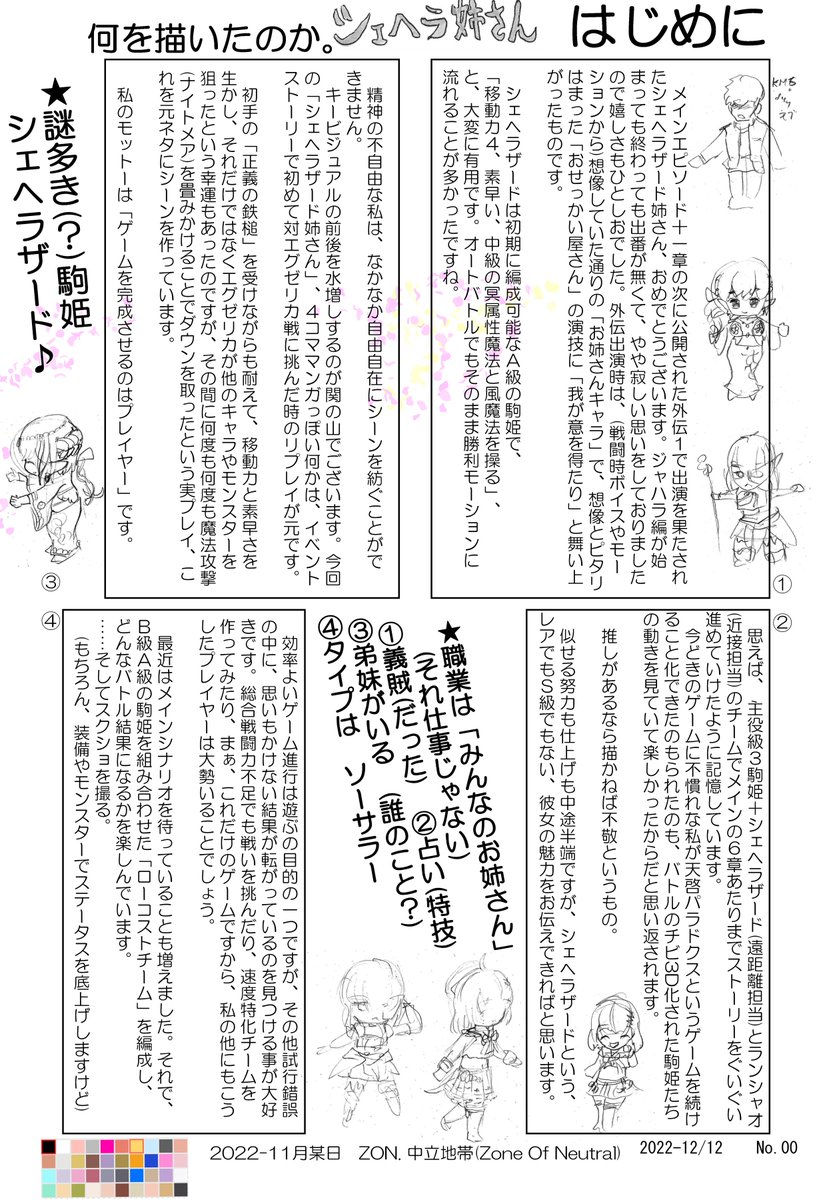 はじめに
シェヘラ姉さん
何を描いたのか。
メインエピソード十一章の次に公開された外伝1で出演を果たされ
たシェヘラザード姉さん、おめでとうございます。ジャハラ編が始
まっても終わっても出番が無くて、やや寂しい思いをしておりました
ので嬉しさもひとしおでした。外伝出演時は、(戦闘時ボイスやモー
ションから)想像していた通りの「お姉さんキャラ」で、想像とピタリ
はまった「おせっかい屋さん」の演技に「我が意を得たり」と舞い上
がったものです。
シェヘラザードは初期に編成可能なA級の駒姫で、
「移動力4、素早い、中級の冥属性魔法と風魔法を操る」、
と、大変に有用です。オートバトルでもそのまま勝利モーションに
流れることが多かったですね。
①
②
思えば、主役級3駒姫+シェヘラザード(遠距離担当)とランシャオ
(近接担当)のチームでメインの6章あたりまでストーリーをぐいぐい
進めていけたように記憶しています。
今どきのゲームに不慣れな私が天啓パラドクスというゲームを続け
ること化できたのもられたのも、バトルのチビ3D化された駒姫たち
の動きを見ていて楽しかったからだと思い返されます。
推しがあるなら描かねば不敬というもの。
似せる努力も仕上げも中途半端ですが、シェヘラザードという、
レアでもS級でもない、彼女の魅力をお伝えできればと思います。
精神の不自由な私は、なかなか自由自在にシーンを紡ぐことがで
きません。
キービジュアルの前後を水増しするのが関の山でございます。今回
の「シェヘラザード姉さん」、4コママンガっぽい何かは、イベント
ストーリーで初めて対エグゼリカ戦に挑んだ時のリプレイが元です。
初手の「正義の鉄槌」を受けながらも耐えて、移動力と素早さを
生かし、それだけではなくエグゼリカが他のキャラやモンスターを
狙ったという幸運もあったのですが、その間に何度も何度も魔法攻撃
(ナイトメア)を畳みかけることでダウンを取ったという実プレイ、こ
れを元ネタにシーンを作っています。
私のモットーは「ゲームを完成させるのはプレイヤー」です。
★謎多き(?)駒姫
シェヘラザード♪
③
★職業は「みんなのお姉さん」
(それ仕事じゃない)
①義賊(だった) ②占い(特技)
③弟妹がいる (誰のこと?)
④タイプは ソーサラー
④
効率よいゲーム進行は遊ぶの目的の一つですが、その他試行錯誤
の中に、思いもかけない結果が転がっているのを見つける事が大好
きです。総合戦闘力不足でも戦いを挑んだり、速度特化チームを
作ってみたり、まぁ、これだけのゲームですから、私の他にもこう
したプレイヤーは大勢いることでしょう。
最近はメインシナリオを待っていることも増えました。それで、
B級A級の駒姫を組み合わせた「ローコストチーム」を編成し、
どんなバトル結果になるかを楽しんでいます。
……そしてスクショを撮る。
(もちろん、装備やモンスターでステータスを底上げしますけど)
2022-11月某日 ZON. 中立地帯(Zone Of Neutral)
2022-12/12 No.00